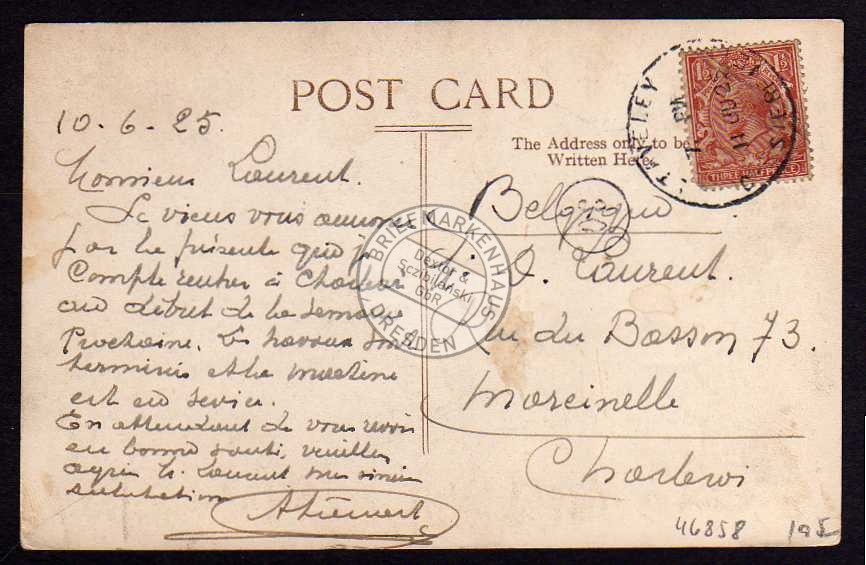 POST CARD
10-6-25.
The Address only to be
Written Here.
Monsieur Laurent.
Je viens vous annon
par la présente que je
Compte rentrer à Charleroi
au début de la semaine
Prochaine. Les travaux sont
terminés et la machine
est en service.
En attendant de vous revoir
en bonne santé, veuillez
agréer Mr. Laurent mes sincères
salutations
Belgique
O. Laurent.
rue du Basson 73.
Marcinelle
Charleroi
STANLEY
11 JU 25
THREE HALFPENCE
BRIEFMARKENHAUS
Dexler &
Sczibilanski
GbR
DRESDEN
46858
195